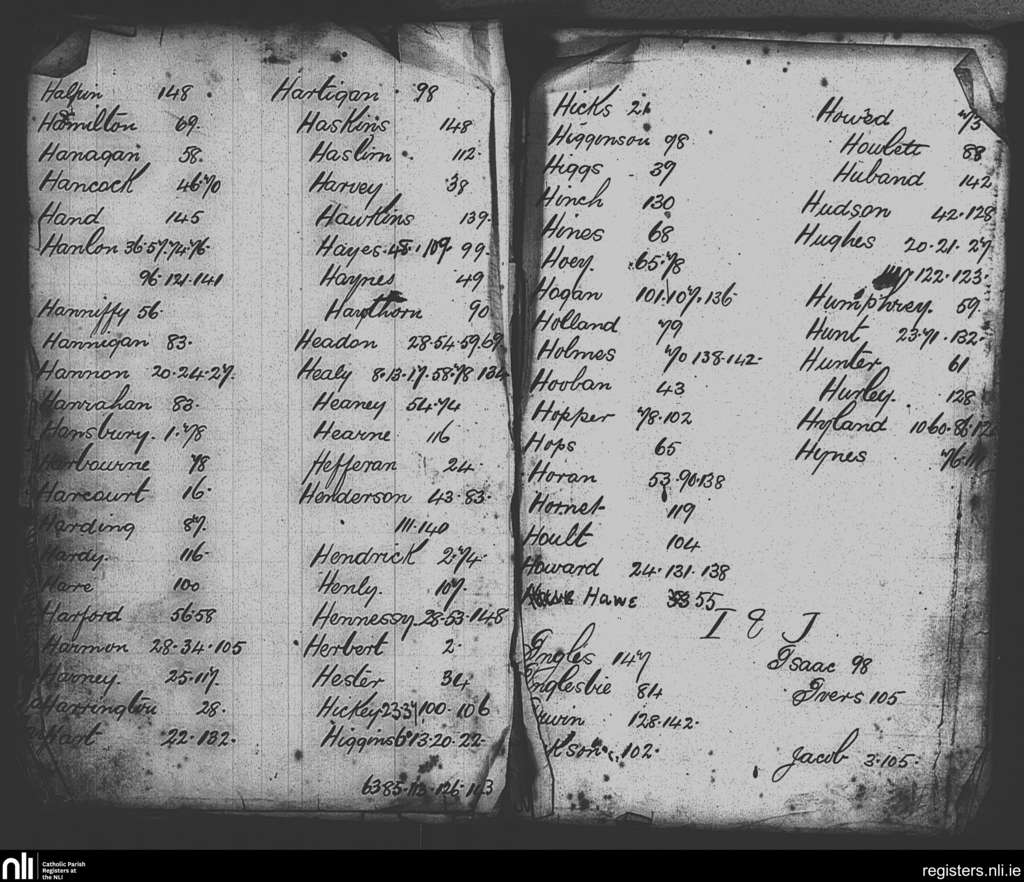 Halpin 148
Hamilton 69.
Hanagan 58.
Hancock 46.70
Hand 145
Hanlon 36.57.74.76.
96.121.141
Hanniffy 56.
Hannigan 83.
Hannon 20.24.27.
Hanrahan 83.
Hansbury. 1.78
Harbourne 78
Harcourt 16.
Harding 87.
Hardy. 116.
Hare 100
Harford 56.58
Harmon 28.34.105
Harney. 25.117.
Harrington 28.
Hart 22.132.
Hartigan 98
Haskins 148
Haslim 112.
Harvey 38
Hawkins 139.
Hayes. 109 99.
Haynes 49
Hawthorn 90
Headon 28.54.59.69
Healy 8.13.17.58.78 134
Heaney 54.74
Hearne 116
Hefferan 24.
Henderson 43.83.
111.140
Hendrick 2.74.
Henly. 107.
Hennessy 28.53.148
Herbert 2.
Hester 34
Hickey 23.57.100.106
Higgins 6.13.20.22.
63 85.113.126.143
Hicks 21
Higginson 98
Higgs 37
Hinch 130
Hines 68
Hoey. 65.78
Hogan 101.107.136
Holland 79
Holmes 70 138.142.
Hooban 43
Hopper 78.102
Hops 65
Horan 53.90.138
Hornet 119
Hoult 104
Howard 24.131.138
Hawe 55
Howed 73
Howlett 88
Huband 142
Hudson 42.128
Hughes 20.21.27
117 122.123.
Humphrey. 59.
Hunt 23.71.132.
Hunter 61
Hurley. 128
Hyland 10 60.86.
Hynes 76.
I & J
Ingles 147
Inglesbie 84
Irwin 128.142.
102.
Isaac 98
Ivers 105
Jacob 3.105.
nli
Catholic Parish
Registers at
the NLI
registers.nli.ie